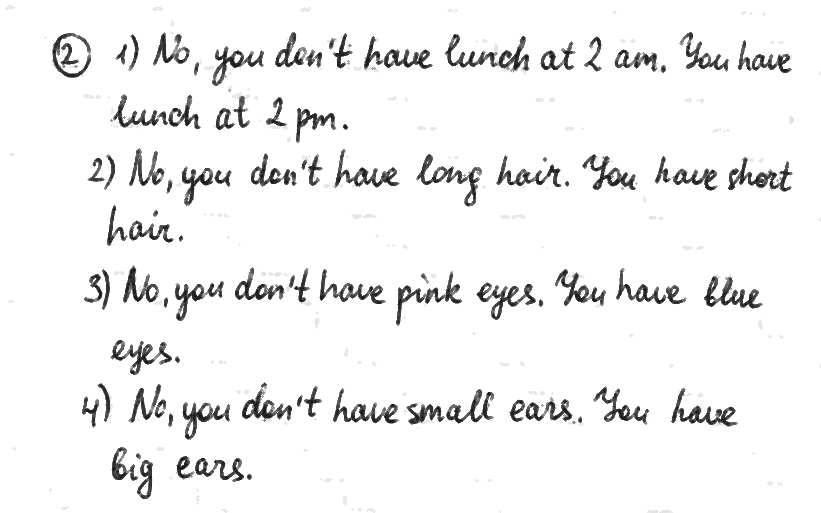 ② 1) No, you don't have lunch at 2 am. You have
lunch at 2 pm.
2) No, you don't have long hair. You have short
hair.
3) No, you don't have pink eyes. You have blue
eyes.
4) No, you don't have small ears. You have
big ears.